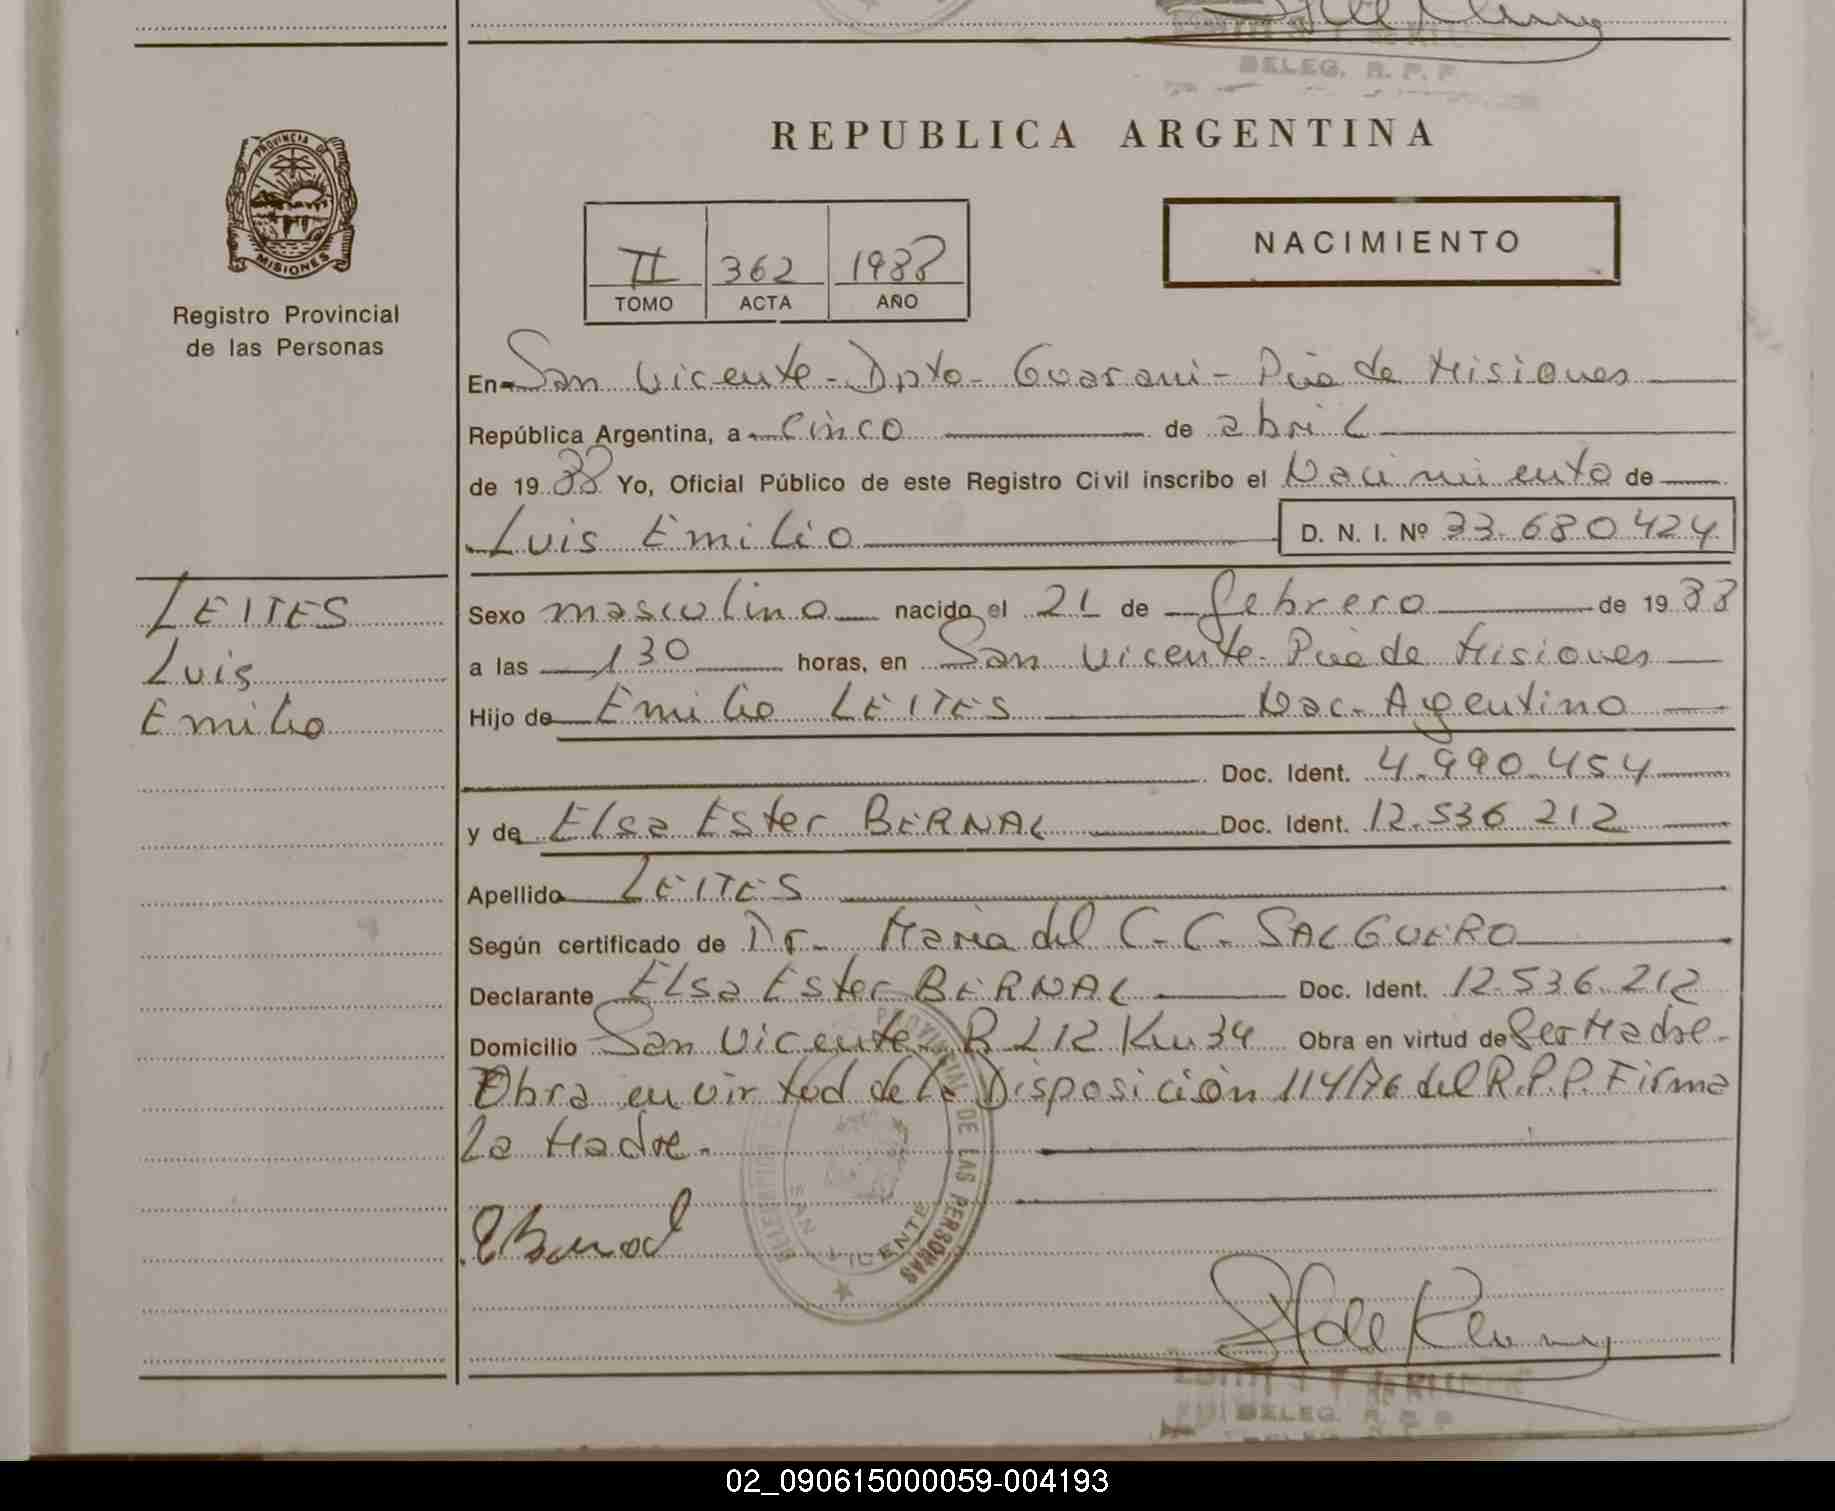 BELEG. R. P. P.
REPUBLICA ARGENTINA
PROVINCIA DE
MISIONES
Registro Provincial
de las Personas
II 362 1988
TOMO ACTA AÑO
NACIMIENTO
En San Vicente - Dpto - Guarani - Pcia de Misiones
República Argentina, a cinco de abril
de 1988 Yo, Oficial Público de este Registro Civil inscribo el Nacimiento de
Luis Emilio D. N. I. Nº 33.680.424
LEITES
Luis
Emilio
Sexo masculino nacido el 21 de febrero de 1988
a las 130 horas, en San Vicente - Pcia de Misiones
Hijo de Emilio LEITES Nac. Argentino
Doc. Ident. 4.990.454
y de Elsa Ester BERNAL Doc. Ident. 12.536.212
Apellido LEITES
Según certificado de Dr. Maria del C. C. SALGUERO
Declarante Elsa Ester BERNAL Doc. Ident. 12.536.212
Domicilio San Vicente R 212 Km 34 Obra en virtud de Ser Madre.
Obra en virtud de la Disposición 114/76 del R.P.P. Firma
La Madre.
PROVINCIAL DE LAS PERSONAS
SAN VICENTE
EBernal
BELEG. R. P. P.
02_090615000059-004193